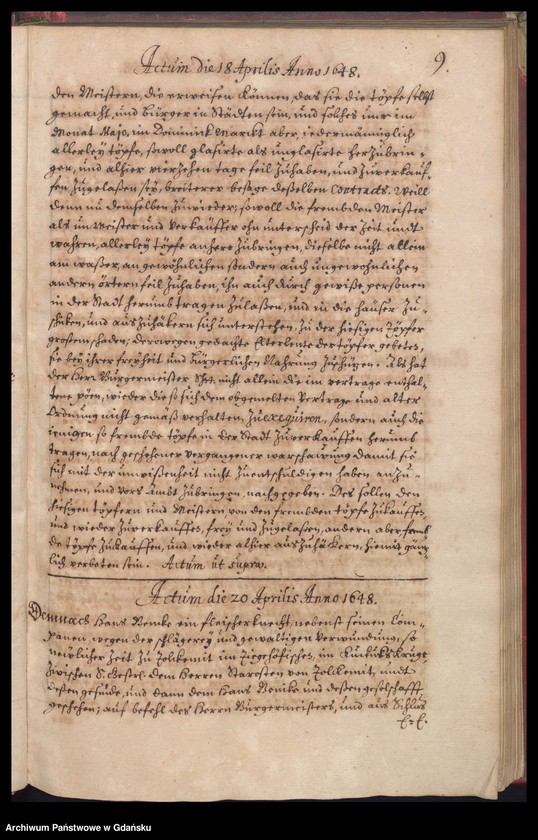 Actum die 18 Aprilis Anno 1648.
9.
den Meistern, die erweisen können, das sie die töpfe selbst
gemacht, und bürger in Städten sein, und solches nur im
Monat Majo, im Dominick Marckt aber, iedermänniglich
allerley töpfe, sowoll glasirte als unglasirte herzubrin-
gen, und alhier vierzehen tage feil zuhaben, und zuverkauf-
fen zugelaßen sey, breiterer besage desselben Contracts. Weill
denn nu demselben zuwieder, sowoll die frembden Meister
als un Meister und verkäuffer ohn unterscheid der Zeit undt
wahren, allerley töpfe anhero zubringen, dieselbe nicht allein
am waßer, an gewöhnlichen sondern auch ungewohnlichen
andern örtern feil zuhaben, ihn auch durch gewiße personen
in der Stadt herumb tragen zulaßen, und in die häuser zu-
schicken, und auszuhäkern sich unterstehen, zu der hiesigen töpfer
großem schaden, derowegen gedachte Elterleute der töpfer gebeten,
sie bey ihrer freyheit und bürgerlichen Nahrung zuschüzen. Als hat
der Herr Bürgermeister nicht allein die im vertrage enthal-
tene pöen, wieder die so sich dem obgemelten Vertrage und alter
Ordnung nicht gemäß verhalten, zu exequiren, sondern auch die
ienigen so frembde töpfe in der Stadt zuverkauffen herumb
tragen, nach geschehener vergangener warschauung damit sie
sich mit der unwißenheit nicht zu entschuldigen haben anzu-
nehmen, und vors Ambt zubringen, nachgegeben. Des sollen den
hiesigen töpfern und Meistern von den frembden töpfe zukauffen,
und wieder zuverkauffen, frey und zugelaßen, andern aber fremb-
de töpfe zukauffen, und wieder alhier auszuhäkern, hiemit gänz-
lich verboten sein. Actum ut supra.
Actum die 20 Aprilis Anno 1648.
Demnach Hans Benke ein fleischerknecht, nebenst seinen Com-
panen wegen der schlägerey und gewaltigen verwundung, so
newlicher Zeit zu Tolkemit im im Kuckukskruge,
zwischen dem Herren Starosten von Tolkemit, undt
deßen gesinde, und dann dem Hans Benke und deßen geselschafft
geschehen; auf befehl des Herrn Bürgermeisters, und aus Schlus
E. E.
Archiwum Państwowe w Gdańsku